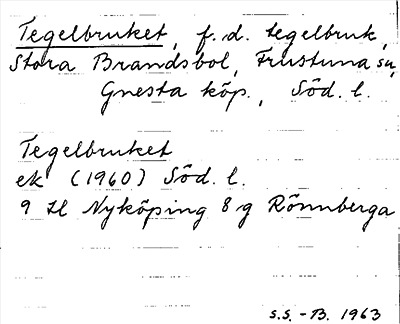 Tegelbruket, f.d. tegelbruk,
Stora Brandsbol, Frustuna sn,
Gnesta köp., Söd. l.
Tegelbruket
ek (1960) Söd. l.
9 H Nyköping 8 g Rönnberga
S.S. - B. 1963